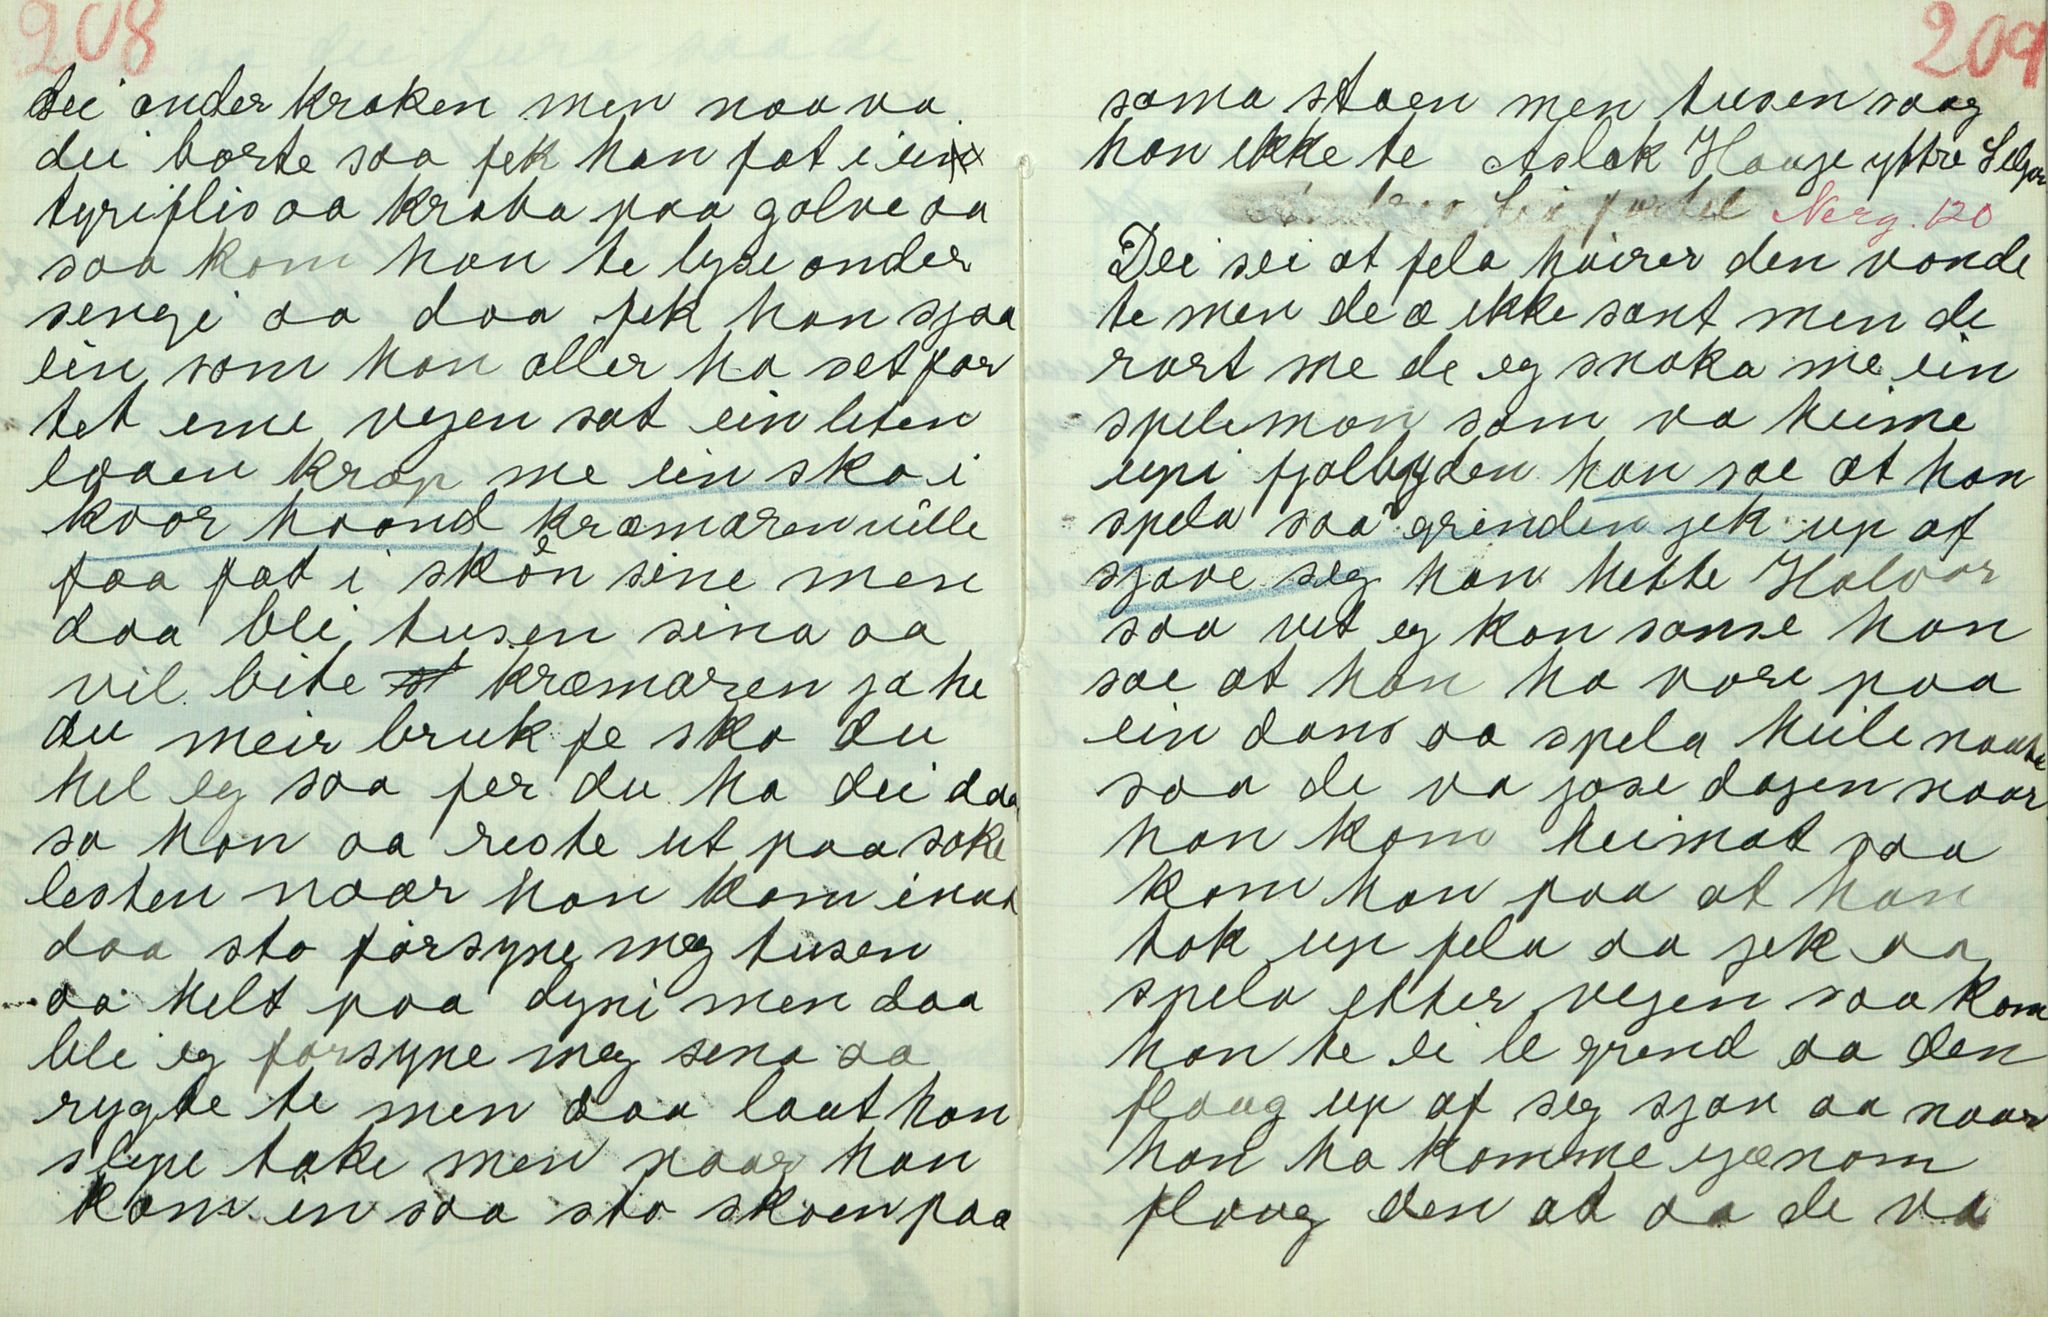 208
dei onder kraken men naa va
dei borte saa fek han fat i ein
tyriflis aa kraba paa golve aa
saa kom han te lyse onder
sengi aa daa fek han sjaa
ein som han aller ha set far
tet eme vegen sat ein liten
loaen krop me ein sko i
kvar haand kræmaren ville
faa fat i skôn sine men
daa blei tusen sina aa
vil bite kræmaren ja he
du meir bruk fe sko du
hel eg saa fer du ha dei daa
sa han aa reste ut paa soke
lesten naar han kom inat
daa sto forsyne meg tusen
aa helt paa dyni men daa
blei eg forsyne meg sena aa
rygte te men daa laut han
slepe take men naar han
kom in saa sto skoen paa
209
soma staen men tusen saag
han ikke te Aslak Hauge yttre
Nerg. 120
Dei sei at fela høirer den vonde
te men de æ ikke sant men de
rart me de eg snaka me ein
spelemon som va heime
upi fjolbygden han sae at han
spela saa grinden jek up af
sjave seg han hette Halvor
saa vet eg kan sanse han
sae at han ha vore paa
ein dans aa spela heile naatte
saa de va jose dagen naar
han kom heimat saa
kom han paa at han
tok up fela aa jek aa
spela etter vegen saa kom
han te ei le grend aa den
flaug up af seg sjav aa naar
han ha komme gjænom
flaug den at aa de va